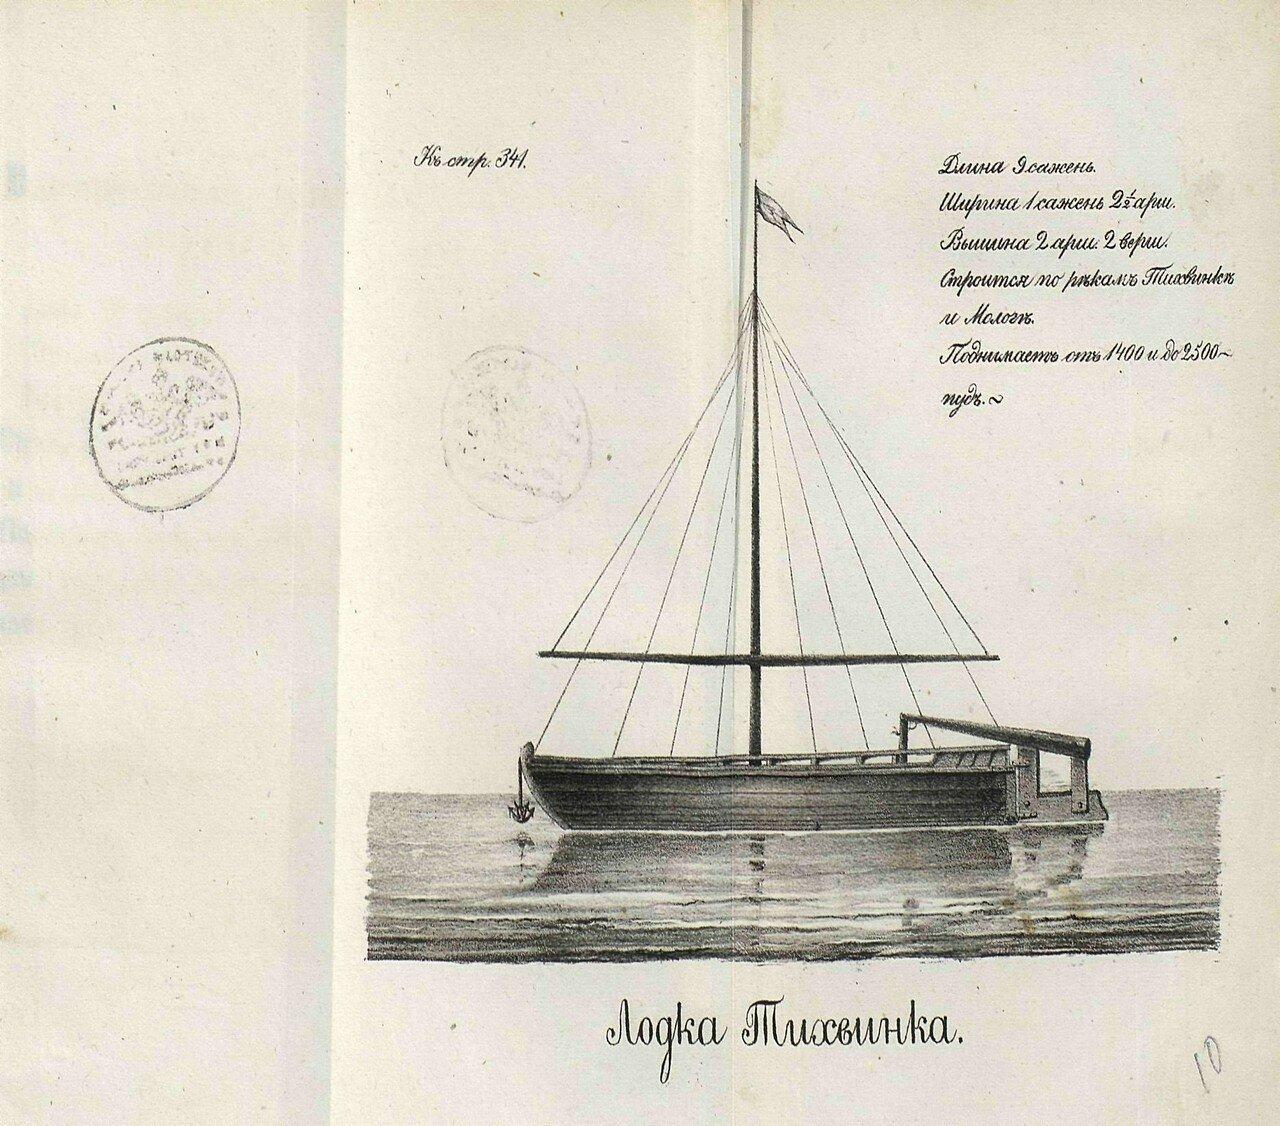 Къ стр. 341.
Длина 9 сажень.
Ширина 1 сажень 2½ арш.
Вышина 2 арш. 2 верш.
Строится по рѣкамъ Тихвинкѣ
и Мологѣ.
Поднимаетъ отъ 1400 и до 2500~
пудъ.~
Лодка Тихвинка.
10